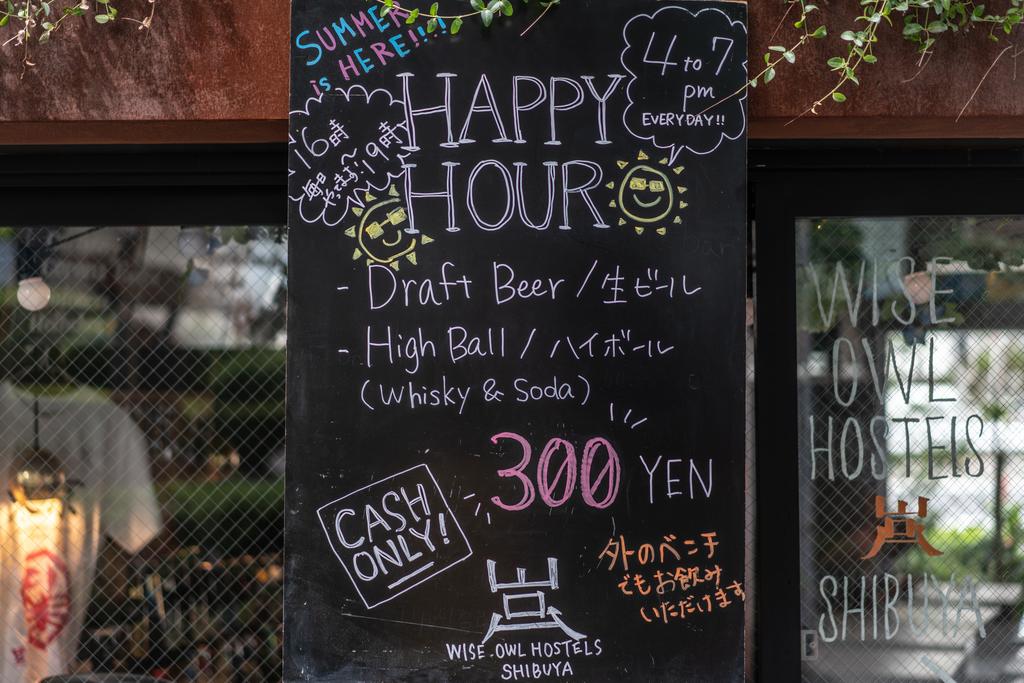 SUMMER
is HERE!!!!
4 to 7
pm
EVERYDAY!!
HAPPY
HOUR
16時
〜19時
毎日
やってます!
- Draft Beer / 生ビール
- High Ball / ハイボール
(Whisky & Soda)
300 YEN
CASH
ONLY!
外のベンチ
でもお飲み
いただけます
WISE OWL HOSTELS
SHIBUYA
WISE
OWL
HOSTELS
SHIBUYA